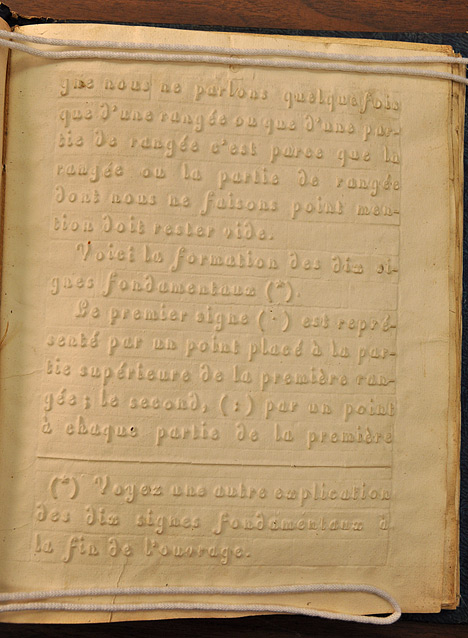 gne nous ne parlons quelquefois
que d'une rangée ou que d'une par-
tie de rangée c'est parce que la
rangée ou la partie de rangée
dont nous ne faisons point men-
tion doit rester vide.
Voici la formation des dix si-
gnes fondamentaux (*).
Le premier signe (·) est repré-
senté par un point placé à la par-
tie supérieure de la première ran-
gée; le second, (:) par un point
à chaque partie de la première
(*) Voyez une autre explication
des dix signes fondamentaux à
la fin de l'ouvrage.